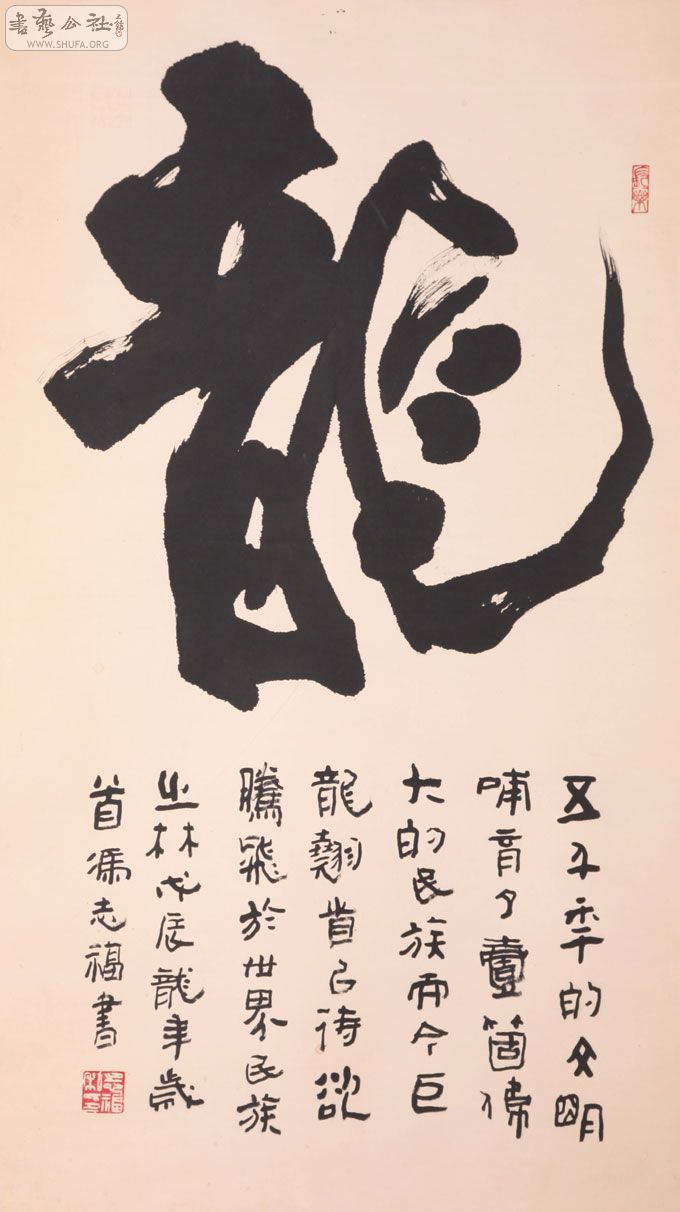 書藝公社
WWW.SHUFA.ORG
龍
五千年的文明
哺育了壹箇偉
大的民族而今巨
龍翹首已待欲
騰飛於世界民族
之林戊辰龍年歲
首馮志福書